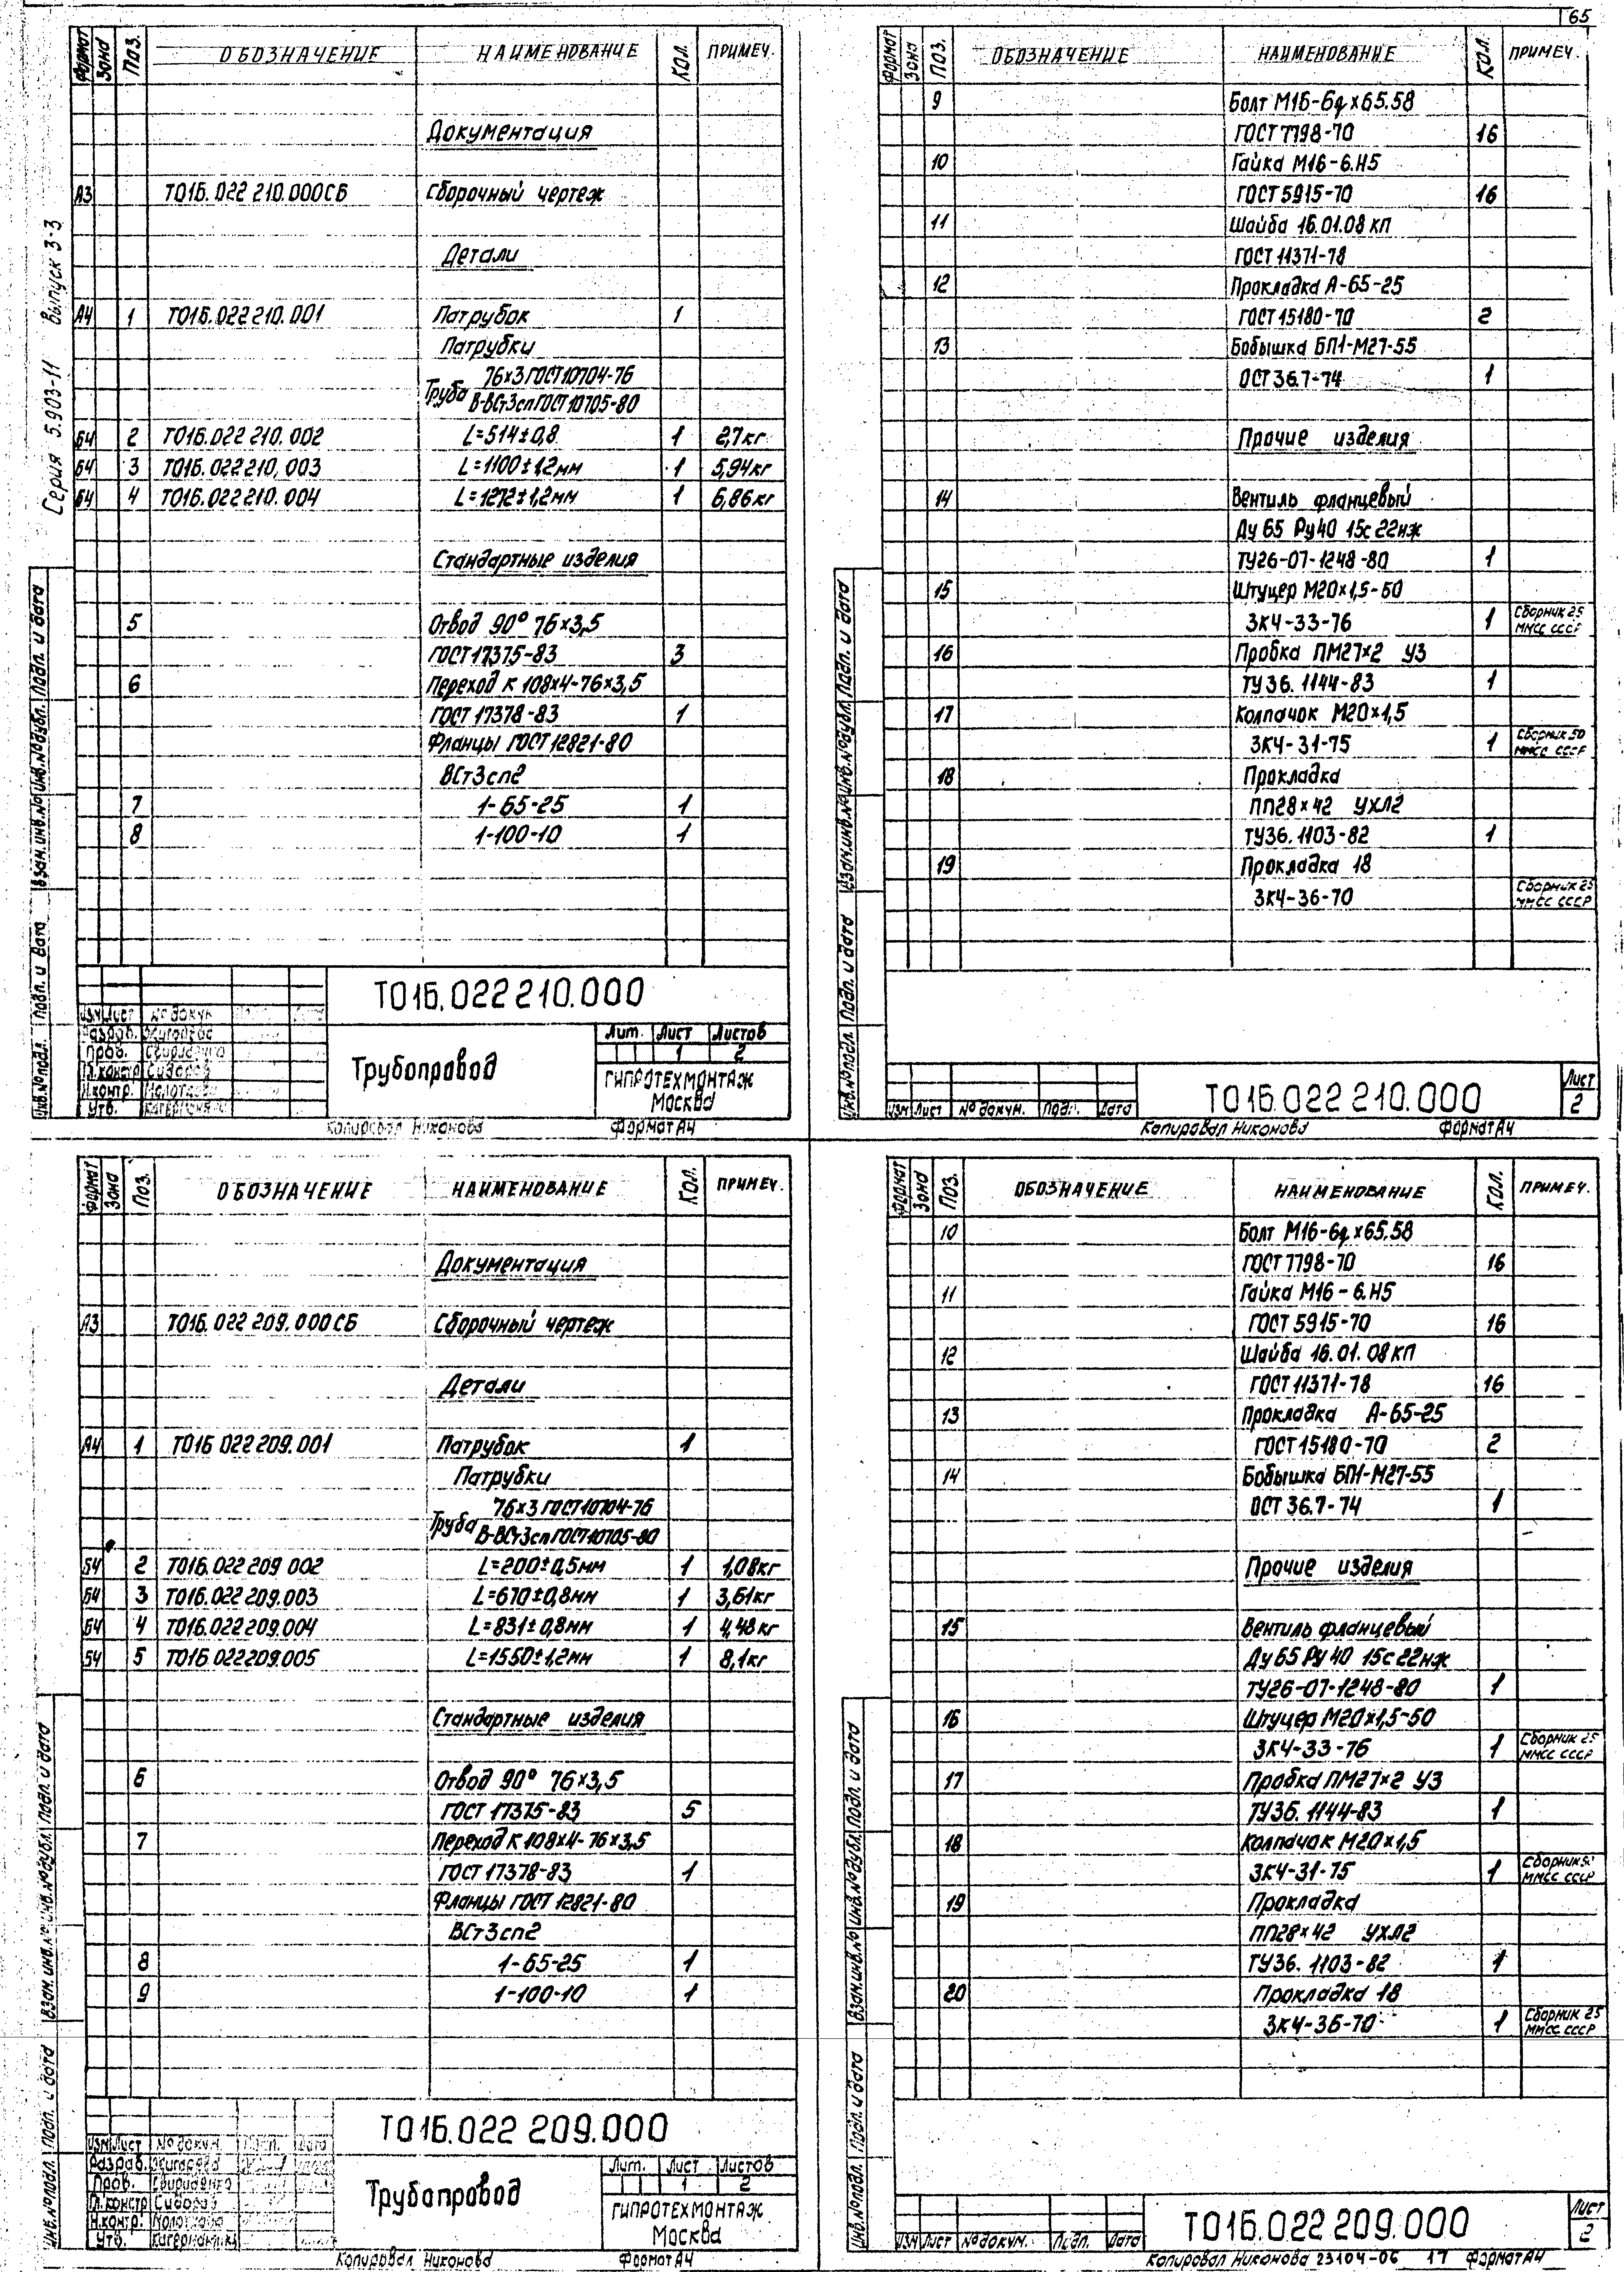 65
Серия 5.903-11 Выпуск 3-3
Формат Зона Поз. ОБОЗНАЧЕНИЕ НАИМЕНОВАНИЕ Кол. ПРИМЕЧ.
Документация
А3 Т01Б.022 210.000СБ Сборочный чертеж
Детали
А4 1 Т01Б.022 210.001 Патрубок 1
Патрубки
Труба 76×3 ГОСТ 10704-76
В-ВСт3сп ГОСТ 10705-80
БЧ 2 Т01Б.022 210.002 L=514±0,8 1 2,7кг
БЧ 3 Т01Б.022 210.003 L=1100±1,2мм 1 5,94кг
БЧ 4 Т01Б.022 210.004 L=1272±1,2мм 1 6,86кг
Стандартные изделия
5 Отвод 90° 76×3,5
ГОСТ 17375-83 3
6 Переход К 108×4-76×3,5
ГОСТ 17378-83 1
Фланцы ГОСТ 12821-80
ВСт3сп2
7 1-65-25 1
8 1-100-10 1
Инв.№подл. Подп. и дата Взам.инв.№ Инв.№дубл. Подп. и дата
Т01Б.022 210.000
Изм Лист № докум.
Разраб.
Пров.
Гл.констр Сидоров
Н.контр.
Утв.
Трубопровод
Лит. Лист Листов
1 2
ГИПРОТЕХМОНТАЖ
Москва
Копировал Никонова Формат А4
Формат Зона Поз. ОБОЗНАЧЕНИЕ НАИМЕНОВАНИЕ Кол. ПРИМЕЧ.
9 Болт М16-6g×65.58
ГОСТ 7798-70 16
10 Гайка М16-6.Н5
ГОСТ 5915-70 16
11 Шайба 16.01.08 кп
ГОСТ 11371-78
12 Прокладка А-65-25
ГОСТ 15180-70 2
13 Бобышка БП1-М27-55
ОСТ 36.7-74 1
Прочие изделия
14 Вентиль фланцевый
Ду 65 Ру 40 15с 22нж
ТУ26-07-1248-80 1
15 Штуцер М20×1,5-50
ЗК4-33-76 1 Сборник 25
ММСС СССР
16 Пробка ПМ27×2 У3
ТУ 36.1144-83 1
17 Колпачок М20×1,5
ЗК4-31-75 1 Сборник 50
ММСС СССР
18 Прокладка
ПП28×42 УХЛ2
ТУ36.1103-82 1
19 Прокладка 18
ЗК4-36-70 Сборник 25
ММСС СССР
Инв.№подл. Подп. и дата Взам.инв.№ Инв.№дубл. Подп. и дата
Изм Лист № докум. Подп. Дата
Т01Б.022 210.000
Лист
2
Копировал Никонова Формат А4
Формат Зона Поз. ОБОЗНАЧЕНИЕ НАИМЕНОВАНИЕ Кол. ПРИМЕЧ.
Документация
А3 Т01Б.022 209.000СБ Сборочный чертеж
Детали
А4 1 Т01Б.022 209.001 Патрубок 1
Патрубки
Труба 76×3 ГОСТ 10704-76
В-ВСт3сп ГОСТ 10705-80
БЧ 2 Т01Б.022 209.002 L=200±0,5мм 1 1,08кг
БЧ 3 Т01Б.022 209.003 L=670±0,8мм 1 3,61кг
БЧ 4 Т01Б.022 209.004 L=831±0,8мм 1 4,48кг
БЧ 5 Т01Б.022 209.005 L=1550±1,2мм 1 8,1кг
Стандартные изделия
6 Отвод 90° 76×3,5
ГОСТ 17375-83 5
7 Переход К 108×4-76×3,5
ГОСТ 17378-83 1
Фланцы ГОСТ 12821-80
ВСт3сп2
8 1-65-25 1
9 1-100-10 1
Инв.№подл. Подп. и дата Взам.инв.№ Инв.№дубл. Подп. и дата
Т01Б.022 209.000
Изм Лист № докум. Дата
Разраб.
Пров. Свириденко
Гл.констр Сидоров
Н.контр.
Утв.
Трубопровод
Лит. Лист Листов
1 2
ГИПРОТЕХМОНТАЖ
Москва
Копировал Никонова Формат А4
Формат Зона Поз. ОБОЗНАЧЕНИЕ НАИМЕНОВАНИЕ Кол. ПРИМЕЧ.
10 Болт М16-6g×65.58
ГОСТ 7798-70 16
11 Гайка М16-6.Н5
ГОСТ 5915-70 16
12 Шайба 16.01.08 кп
ГОСТ 11371-78 16
13 Прокладка А-65-25
ГОСТ 15180-70 2
14 Бобышка БП1-М27-55
ОСТ 36.7-74 1
Прочие изделия
15 Вентиль фланцевый
Ду 65 Ру 40 15с 22нж
ТУ26-07-1248-80 1
16 Штуцер М20×1,5-50
ЗК4-33-76 1 Сборник 25
ММСС СССР
17 Пробка ПМ27×2 У3
ТУ36.1144-83 1
18 Колпачок М20×1,5
ЗК4-31-75 1 Сборник
ММСС СССР
19 Прокладка
ПП28×42 УХЛ2
ТУ36.1103-82 1
20 Прокладка 18
ЗК4-36-70 1 Сборник 25
ММСС СССР
Инв.№подл. Подп. и дата Взам.инв.№ Инв.№дубл. Подп. и дата
Изм Лист № докум. Подп. Дата
Т01Б.022 209.000
Лист
2
Копировал Никонова 23104-06 17 Формат А4